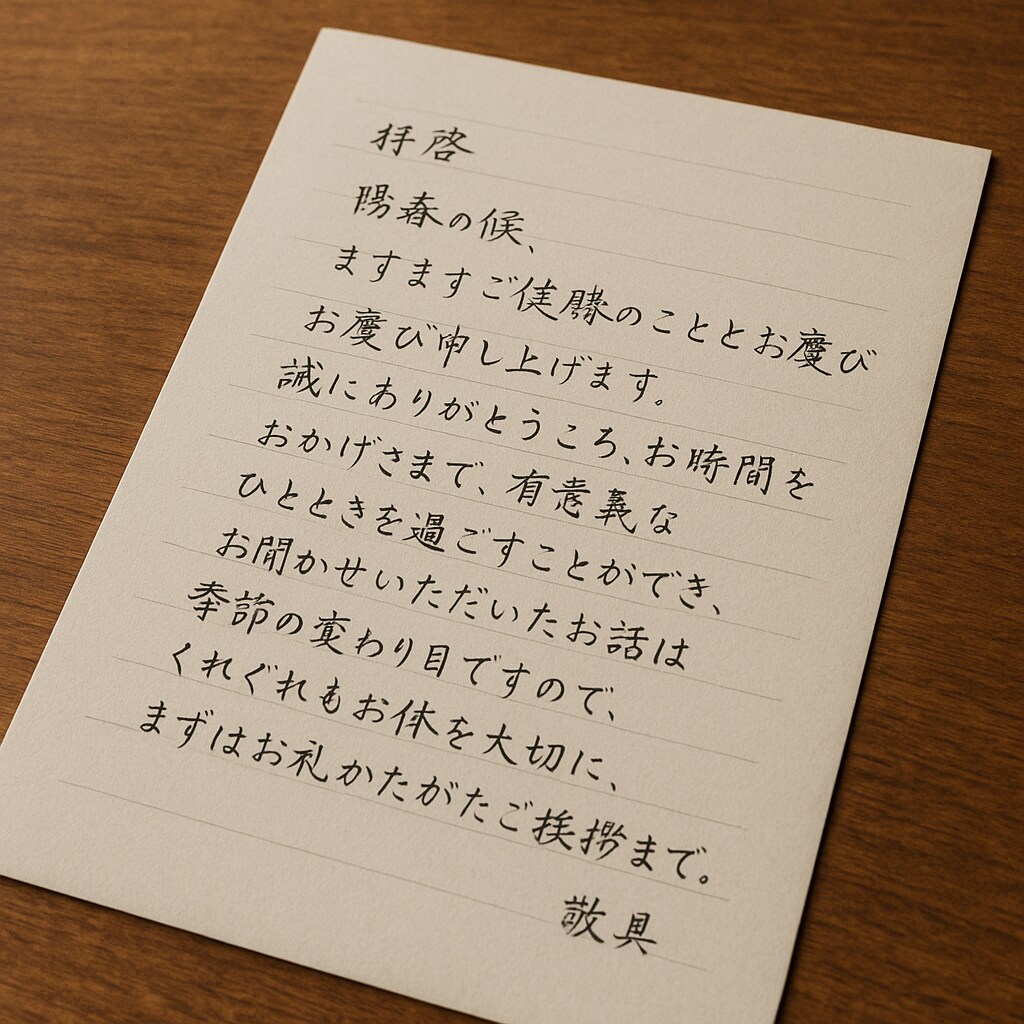 拝啓
陽春の候、
ますますご健勝のこととお慶び
お慶び申し上げます。
誠にありがとうころ、お時間を
おかげさまで、有意義な
ひとときを過ごすことができ、
お聞かせいただいたお話は
季節の変わり目ですので、
くれぐれもお体を大切に、
まずはお礼かたがたご挨拶まで。
敬具